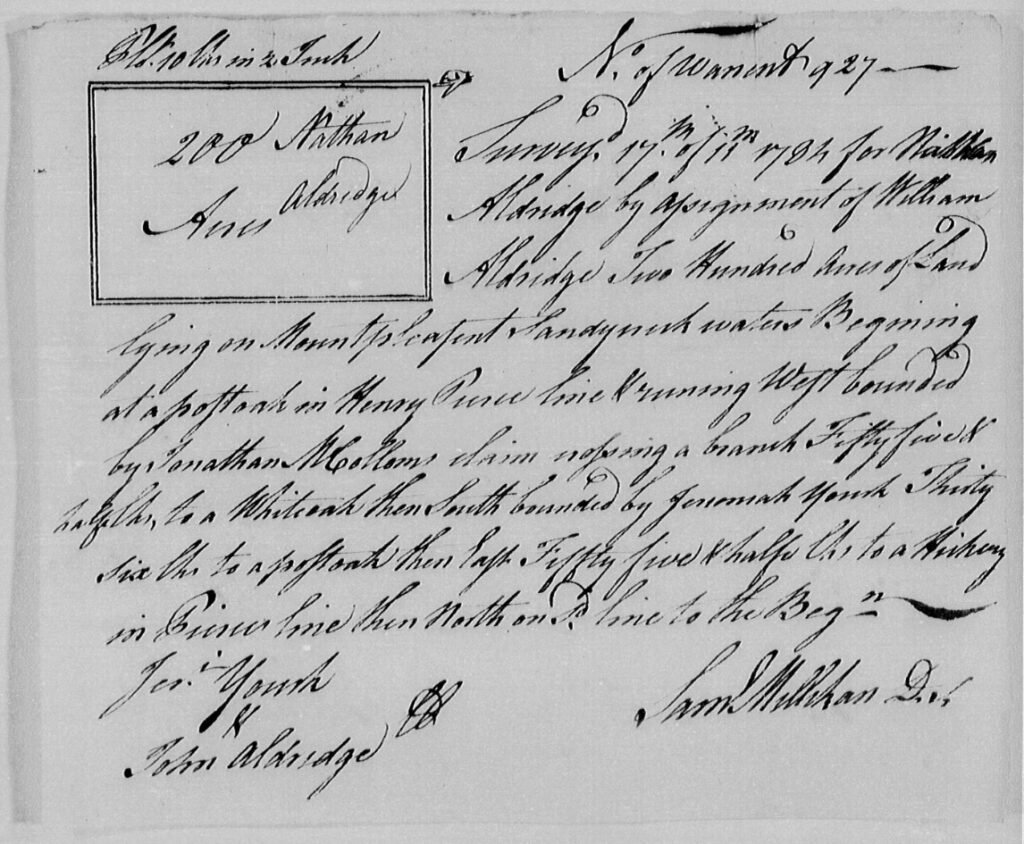 in 2 Inch
No. of Warrent 927
200 Nathan
Acres Aldridge
Survey.d 17.th of 11m 1784 for Nathan
Aldridge by Assignment of William
Aldridge Two Hundred Acres of Land
lying on Mountpleasent Sandycreek waters Begining
at a postoak in Henry Pierce line & runing West bounded
by Jonathan claim crossing a branch Fifty five &
half Chs, to a Whiteoak then South bounded by Jeremiah York Thirty
six Chs to a postoak then East Fifty five & half Chs to a Hickery
in Pierces line then North on Sd. line to the Begn
Jer. York
&
John Aldridge CB
Saml Millikan D. S.